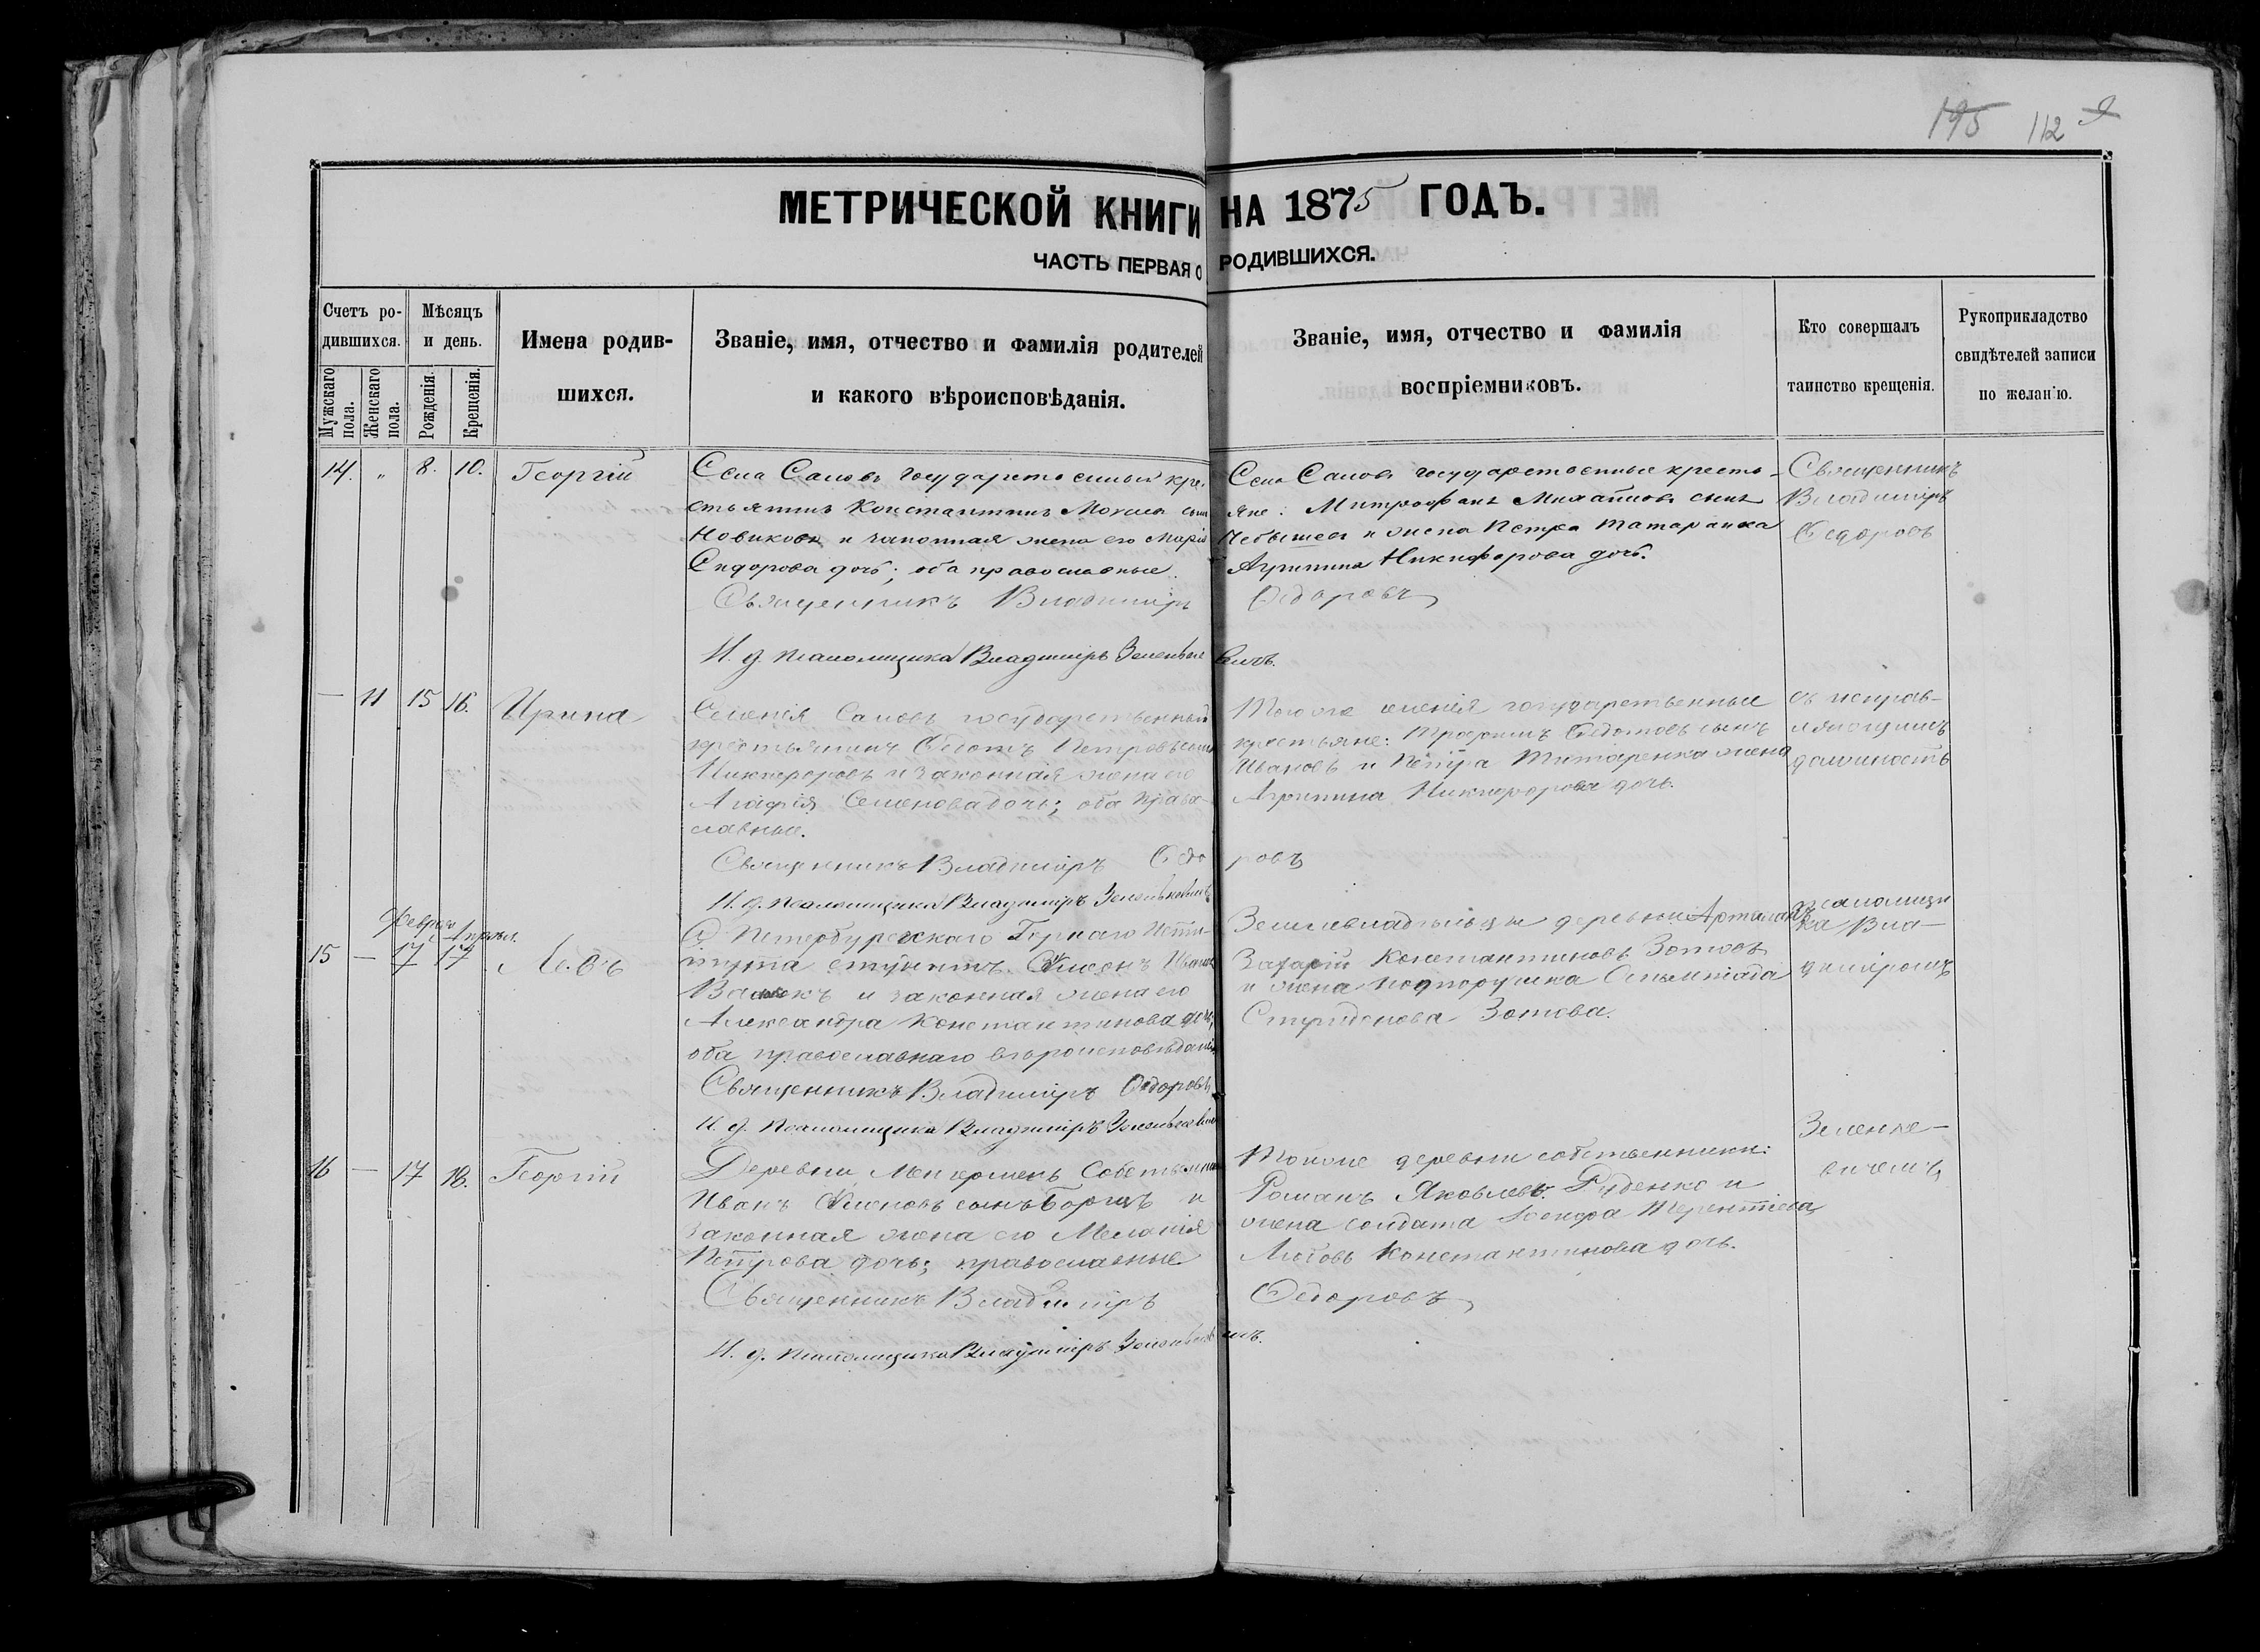 195 112
МЕТРИЧЕСКОЙ КНИГИ НА 1875 ГОДЪ.
ЧАСТЬ ПЕРВАЯ О РОДИВШИХСЯ.
Счетъ ро-
дившихся.
Мужскаго пола.
Женскаго пола.
Мѣсяцъ
и день.
Рожденія.
Крещенія.
Имена родив-
шихся.
Званіе, имя, отчество и фамилія родителей
и какого вѣроисповѣданія.
Званіе, имя, отчество и фамилія
воспріемниковъ.
Кто совершалъ
таинство крещенія.
Рукоприкладство
свидѣтелей записи
по желанію.
14. " 8. 10. Георгій
Села Саловъ государственный кре-
стьянинъ Константинъ сынъ
Новиковъ и законная жена его Марія
Сидорова дочь; оба православные.
Священникъ Владиміръ Ѳедоровъ
И. д. псаломщика Владиміръ Зеленкевичъ.
Села Саловъ государственные кресть-
яне: Митрофанъ Михайловъ сынъ
и жена Петра
Агрипина Никифорова дочь.
Священникъ
Владиміръ
Ѳедоровъ
— 11 15 16. Ирина
Селенія Саловъ государственный
крестьянинъ Ѳедотъ Петровъ сынъ
Никифоровъ и законная жена его
Агафія Семенова дочь; оба право-
славные.
Священникъ Владиміръ Ѳедоровъ
И. д. псаломщика Владиміръ Зеленкевичъ
Того же селенія государственные
крестьяне: Трофимъ Ѳедотовъ сынъ
Ивановъ и Петра Титаренка жена
Агрипина Никифорова дочь.
съ исправ-
ляющимъ
должность
Февраля Апрѣл.
15 — 17 17 Левъ
С Петербургскаго Горнаго Инсти-
тута студентъ Симеонъ
и законная жена его
Александра Константинова дочь,
оба православнаго вѣроисповѣданія
Священникъ Владиміръ Ѳедоровъ
И. д. псаломщика Владиміръ Зеленкевичъ
Землевладѣльцы деревни
Захарій Константиновъ Зотовъ
и жена подпоручика Олимпіада
Спиридонова Зотова.
псаломщи
ка Вла-
диміромъ
16 — 17 18. Георгій
Деревни собственникъ
Иванъ сынъ и
законная жена его Меланія
Петрова дочь; православные
Священникъ Владиміръ Ѳедоровъ
И. д. псаломщика Владиміръ Зеленкевичъ.
Тойже деревни собственники:
Романъ Яковлевъ Руденко и
жена солдата Іосифа Терентіева
Любовь Константинова дочь.
Зеленке-
вичемъ